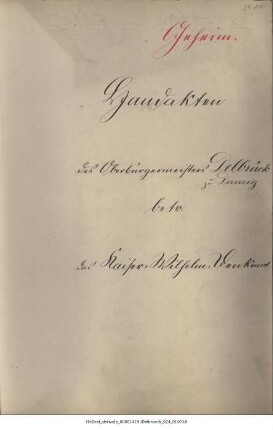 Geheim.
Handakten
des Oberbürgermeisters Delbrück
zu Danzig
betr.
das Kaiser-Wilhelm-Denkmal